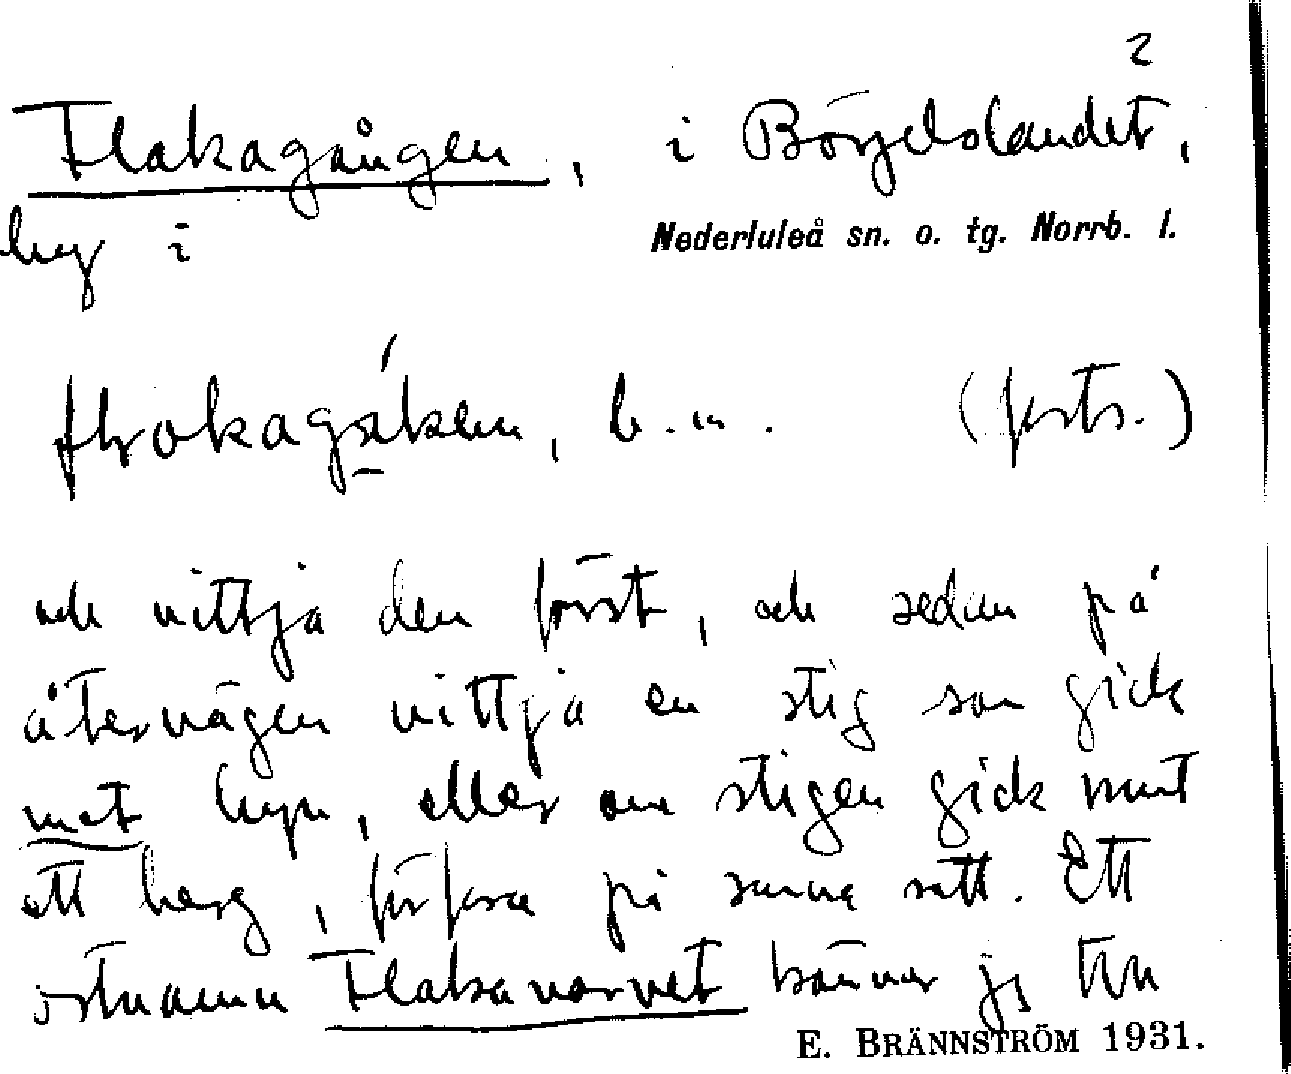 2
Flakagången, i Börjelslandet,
by i Nederluleå sn. o. tg. Norrb. l.
b. m. (forts.)
och vittja den först, och sedan på
återvägen vittja en stig som gick
mot byn, eller om stigen gick runt
ett berg, förfara på samma sätt. Ett
ortnamn Flakavarvet känner jg till
E. BRÄNNSTRÖM 1931.